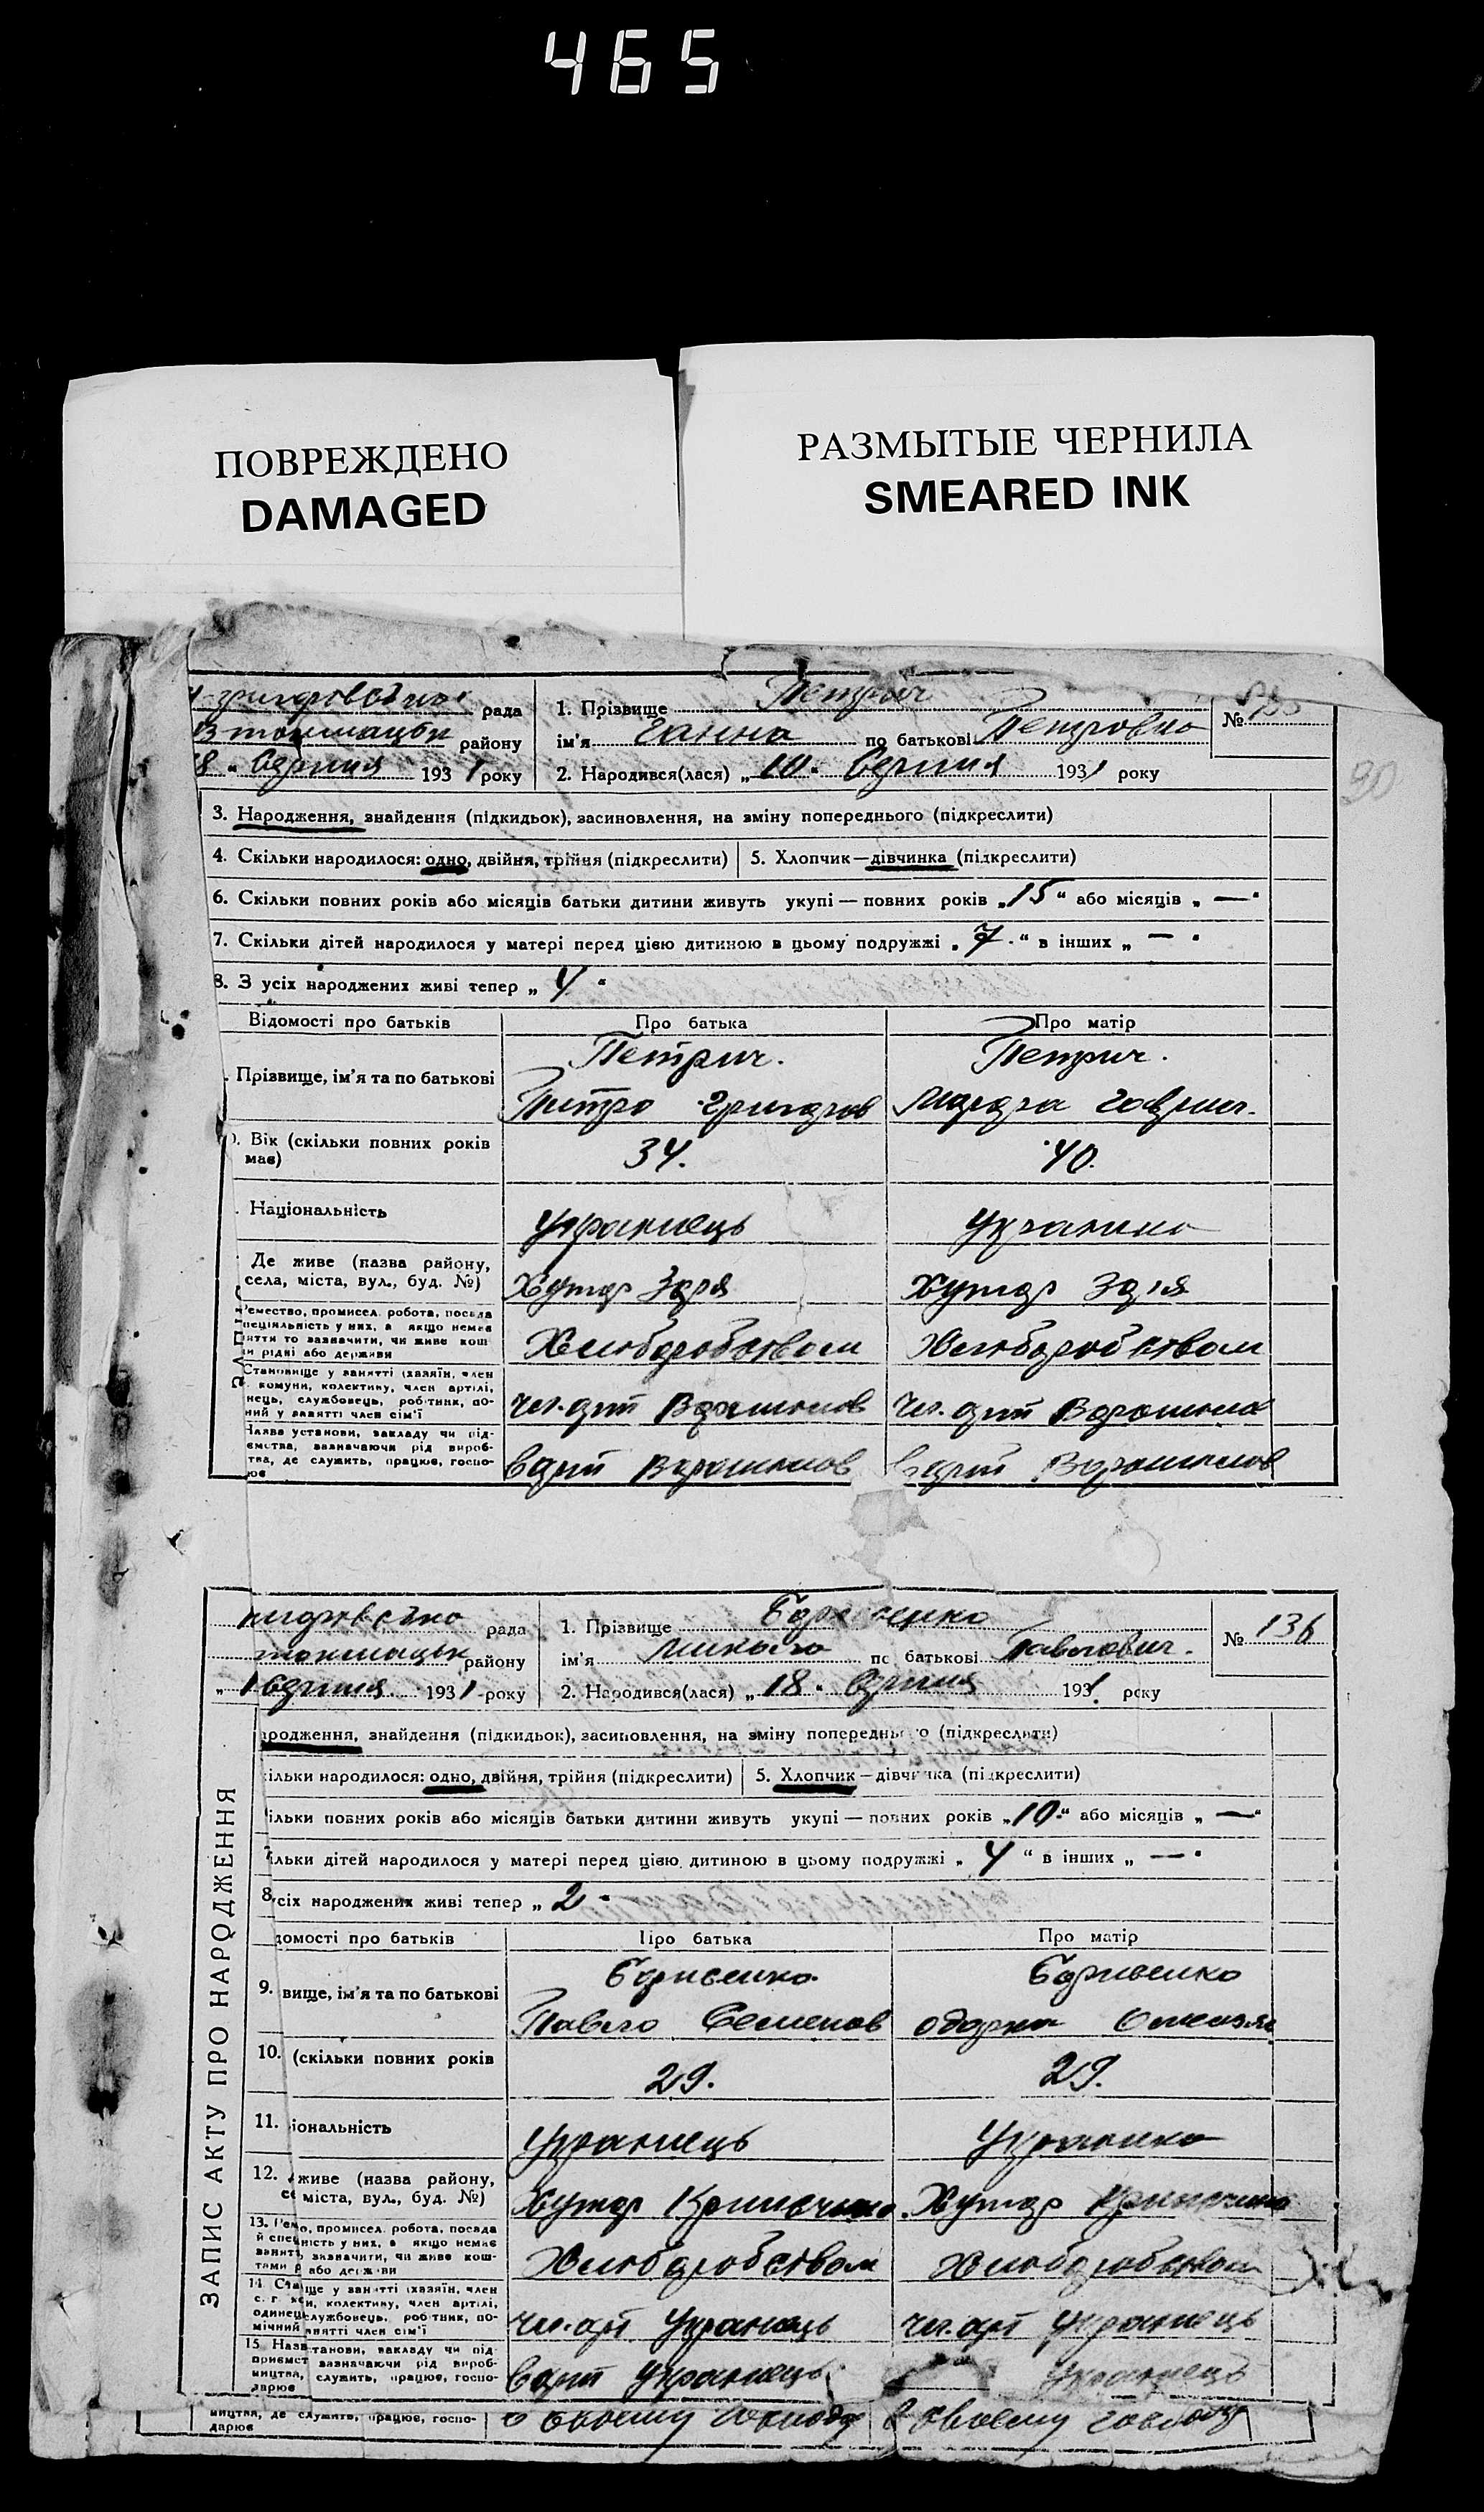 465
ПОВРЕЖДЕНО
DAMAGED
РАЗМЫТЫЕ ЧЕРНИЛА
SMEARED INK
рада
району
8 " серпня 1931 року
1. Прізвище Петрич
ім'я Ганна по батькові Петровна
2. Народився(лася) „ 10 " серпня 1931 року
№
90
3. Народження, знайдення (підкидьок), засиновлення, на зміну попереднього (підкреслити)
4. Скільки народилося: одно, двійня, трійня (підкреслити) 5. Хлопчик—дівчинка (підкреслити)
6. Скільки повних років або місяців батьки дитини живуть укупі — повних років „ 15 " або місяців „ — "
7. Скільки дітей народилося у матері перед цією дитиною в цьому подружжі „ 7 " в інших „ — "
8. З усіх народжених живі тепер „ 4 "
Відомості про батьків Про батька Про матір
Прізвище, ім'я та по батькові
Петрич. Петрич.
Петро Григоров
Вік (скільки повних років
має)
34. 40.
Національність
Українець Українка
Де живе (назва району,
села, міста, вул., буд. №)
Хутор Зоря Хутор Зоря
емество, промисел. робота, посада
пеціяльність у них, а якщо немає
няття то зазначити, чи живе кош
и рідні або держави
Хлиборобством Хлиборобством
Становище у занятті (хазяїн, член
комуни, колективу, член артілі,
нець, службовець, робітник, по-
ний у занятті член сім'ї
Чл. арт Ворошилов Чл. арт Ворошилов
Назва установи, закладу чи під-
ємства, зазначаючи рід вироб-
тва, де служить, працює, госпо-
ює
В арт Ворошилов В арт Ворошилов
рада
району
„ серпня 1931 року
1. Прізвище
ім'я Микола по батькові Павлович.
2. Народився(лася) „ 18 " серпня 1931 року
№ 136
ародження, знайдення (підкидьок), засиновлення, на зміну попереднього (підкреслити)
ільки народилося: одно, двійня, трійня (підкреслити) 5. Хлопчик—дівчинка (підкреслити)
ільки повних років або місяців батьки дитини живуть укупі — повних років „ 10 " або місяців „ — "
7. ільки дітей народилося у матері перед цією дитиною в цьому подружжі „ 4 " в інших „ — "
8. сіх народжених живі тепер „ 2 "
домості про батьків Про батька Про матір
9. вище, ім'я та по батькові
Борисенко Борисенко
Павло Семенов Одарка
10. (скільки повних років
29. 29.
11. іональність
Українець Українка
12. живе (назва району,
се міста, вул., буд. №)
Хутор Хутор
13. Рем о, промисел. робота, посада
й спец ність у них, а якщо немає
занятт зазначити, чи живе кош-
тами р або держави
Хлиборобством Хлиборобством
14. Ста ще у занятті (хазяїн, член
и, колективу, член артілі,
одинец службовець, робітник, по-
мічний нятті член сім'ї
Чл. арт Українець Чл. арт Українець
15. Назв танови, закладу чи під
приємст зазначаючи рід вироб-
ництва, служить, працює, госпо-
дарює
В арт Українець Українець
ЗАПИС АКТУ ПРО НАРОДЖЕННЯ
ництва, де служить, працює, госпо-
дарює
в своему господ в своему господ